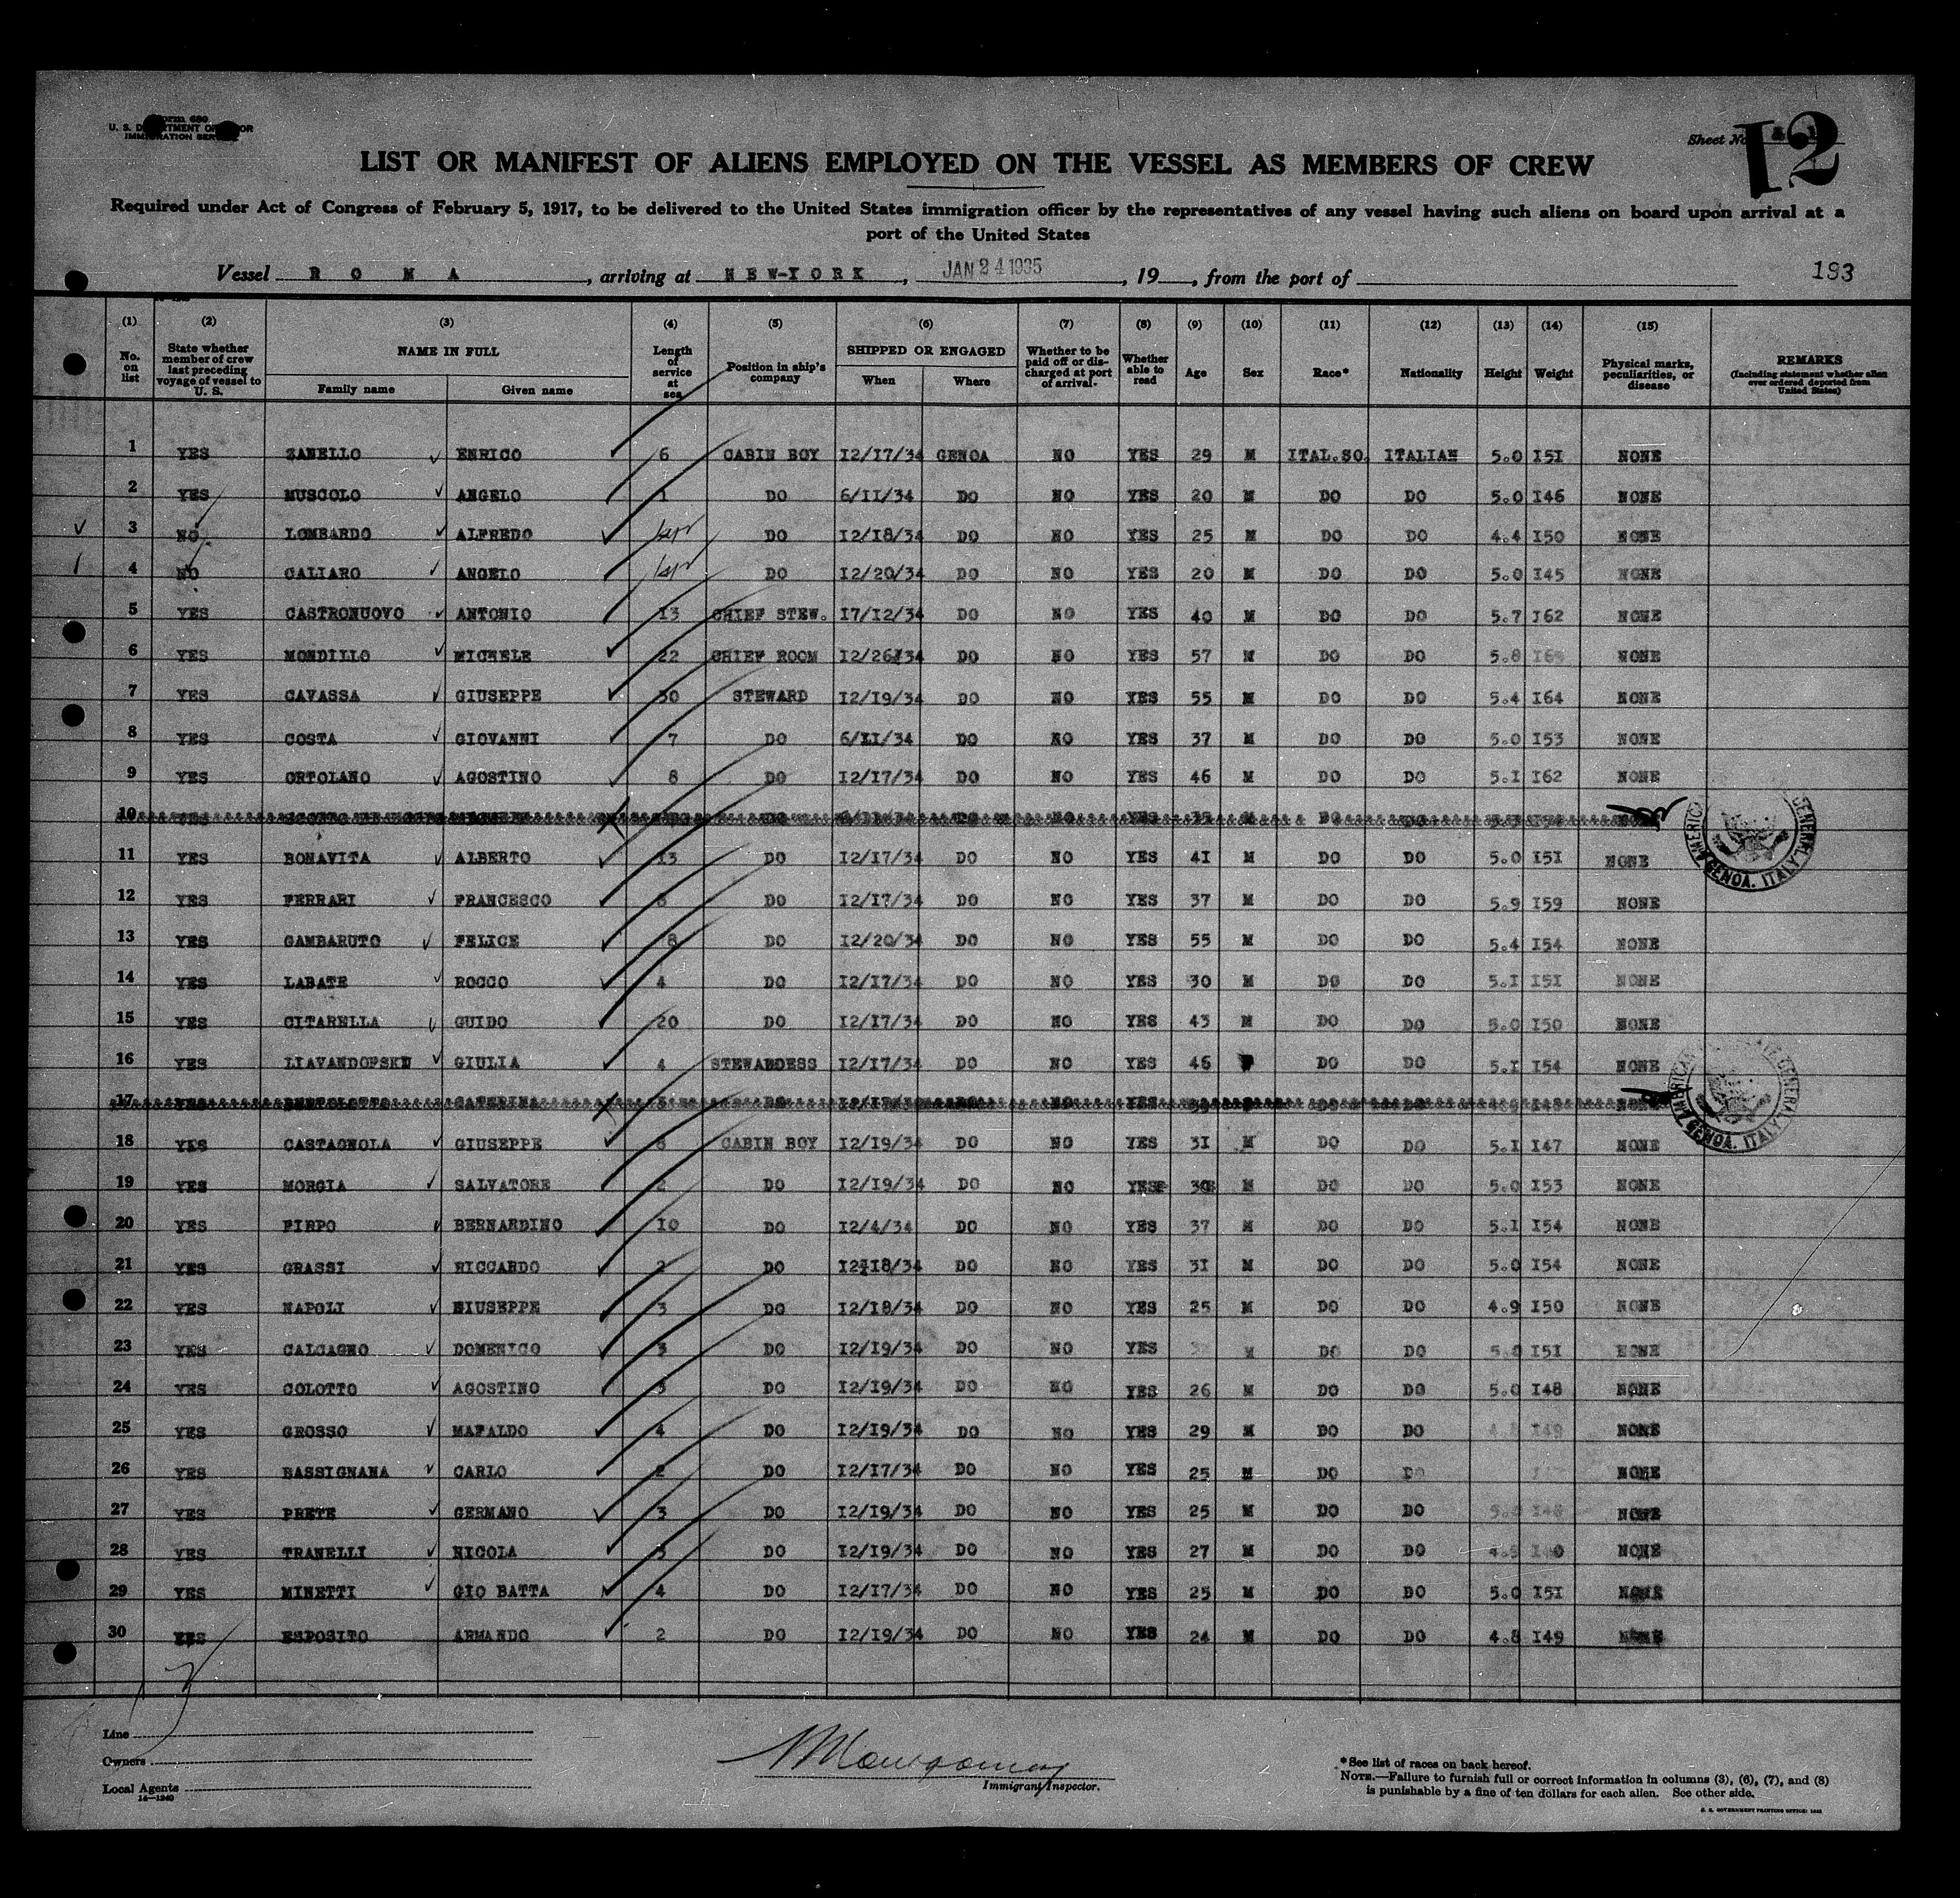 Form 680
U. S. DEPARTMENT OF LABOR
IMMIGRATION SERVICE
Sheet No.
12
LIST OR MANIFEST OF ALIENS EMPLOYED ON THE VESSEL AS MEMBERS OF CREW
Required under Act of Congress of February 5, 1917, to be delivered to the United States immigration officer by the representatives of any vessel having such aliens on board upon arrival at a
port of the United States
Vessel R O M A, arriving at NEW-YORK, JAN 24 1935, 19 , from the port of
193
(1) (2) (3) (4) (5) (6) (7) (8) (9) (10) (11) (12) (13) (14) (15)
No. on list State whether member of crew last preceding voyage of vessel to U. S. NAME IN FULL Family name Given name Length of service at sea Position in ship's company SHIPPED OR ENGAGED When Where Whether to be paid off or discharged at port of arrival Whether able to read Age Sex Race* Nationality Height Weight Physical marks, peculiarities, or disease REMARKS (Including statement whether alien ever ordered deported from United States)
1 YES ZANELLO ENRICO 6 CABIN BOY I2/I7/34 GENOA NO YES 29 M ITAL.SO. ITALIAN 5.0 I5I NONE
2 YES MUSCOLO ANGELO 1 DO 6/II/34 DO NO YES 20 M DO DO 5.0 I46 NONE
3 NO LOMBARDO ALFREDO DO I2/I8/34 DO NO YES 25 M DO DO 4.4 I50 NONE
4 NO CALIARO ANGELO DO I2/20/34 DO NO YES 20 M DO DO 5.0 I45 NONE
5 YES CASTRONUOVO ANTONIO I3 CHIEF STEW. I7/I2/34 DO NO YES 40 M DO DO 5.7 I62 NONE
6 YES MONDILLO MICHELE 22 CHIEF ROOM I2/26/34 DO NO YES 57 M DO DO 5.8 NONE
7 YES CAVASSA GIUSEPPE 30 STEWARD I2/I9/34 DO NO YES 55 M DO DO 5.4 I64 NONE
8 YES COSTA GIOVANNI 7 DO 6/II/34 DO NO YES 37 M DO DO 5.0 I53 NONE
9 YES ORTOLANO AGOSTINO 8 DO I2/I7/34 DO NO YES 46 M DO DO 5.I I62 NONE
10 YES DO DO NO YES M DO DO
11 YES BONAVITA ALBERTO I3 DO I2/I7/34 DO NO YES 4I M DO DO 5.0 I5I NONE
12 YES FERRARI FRANCESCO DO I2/I7/34 DO NO YES 37 M DO DO 5.9 I59 NONE
13 YES GAMBARUTO FELICE 8 DO I2/20/34 DO NO YES 55 M DO DO 5.4 I54 NONE
14 YES LABATE ROCCO 4 DO I2/I7/34 DO NO YES 30 M DO DO 5.I I5I NONE
15 YES CITARELLA GUIDO 20 DO I2/I7/34 DO NO YES 43 M DO DO 5.0 I50 NONE
16 YES GIULIA 4 STEWARDESS I2/I7/34 DO NO YES 46 DO DO 5.I I54 NONE
17 YES BERTOLOTTO CATERINA DO NO YES DO DO
18 YES CASTAGNOLA GIUSEPPE 8 CABIN BOY I2/I9/34 DO NO YES 3I M DO DO 5.I I47 NONE
19 YES MORGIA SALVATORE 2 DO I2/I9/34 DO NO YES M DO DO 5.0 I53 NONE
20 YES FIRPO BERNARDINO I0 DO I2/4/34 DO NO YES 37 M DO DO 5.I I54 NONE
21 YES GRASSI RICCARDO 2 DO I2/I8/34 DO NO YES 3I M DO DO 5.0 I54 NONE
22 YES NAPOLI GIUSEPPE 3 DO I2/I8/34 DO NO YES 25 M DO DO 4.9 I50 NONE
23 YES CALCAGNO DOMENICO 3 DO I2/I9/34 DO NO YES M DO DO 5.0 I5I NONE
24 YES COLOTTO AGOSTINO 3 DO I2/I9/34 DO NO YES 26 M DO DO 5.0 I48 NONE
25 YES GROSSO MAFALDO 4 DO I2/I9/34 DO NO YES 29 M DO DO 4.8 I49 NONE
26 YES BASSIGNANA CARLO 2 DO I2/I7/34 DO NO YES 25 M DO DO NONE
27 YES PRETE GERMANO 3 DO I2/I9/34 DO NO YES 25 M DO DO NONE
28 YES TRANELLI NICOLA 3 DO I2/I9/34 DO NO YES 27 M DO DO NONE
29 YES MINETTI GIO BATTA 4 DO I2/I7/34 DO NO YES 25 M DO DO 5.0 I5I NONE
30 YES ESPOSITO ARMANDO 2 DO I2/I9/34 DO NO YES 24 M DO DO 4.8 I49 NONE
GENOA, ITALY
GENOA, ITALY
Line
Owners
Local Agents
14—1240
Montgomery
Immigrant Inspector.
*See list of races on back hereof.
NOTE.—Failure to furnish full or correct information in columns (3), (6), (7), and (8)
is punishable by a fine of ten dollars for each alien. See other side.
U. S. GOVERNMENT PRINTING OFFICE